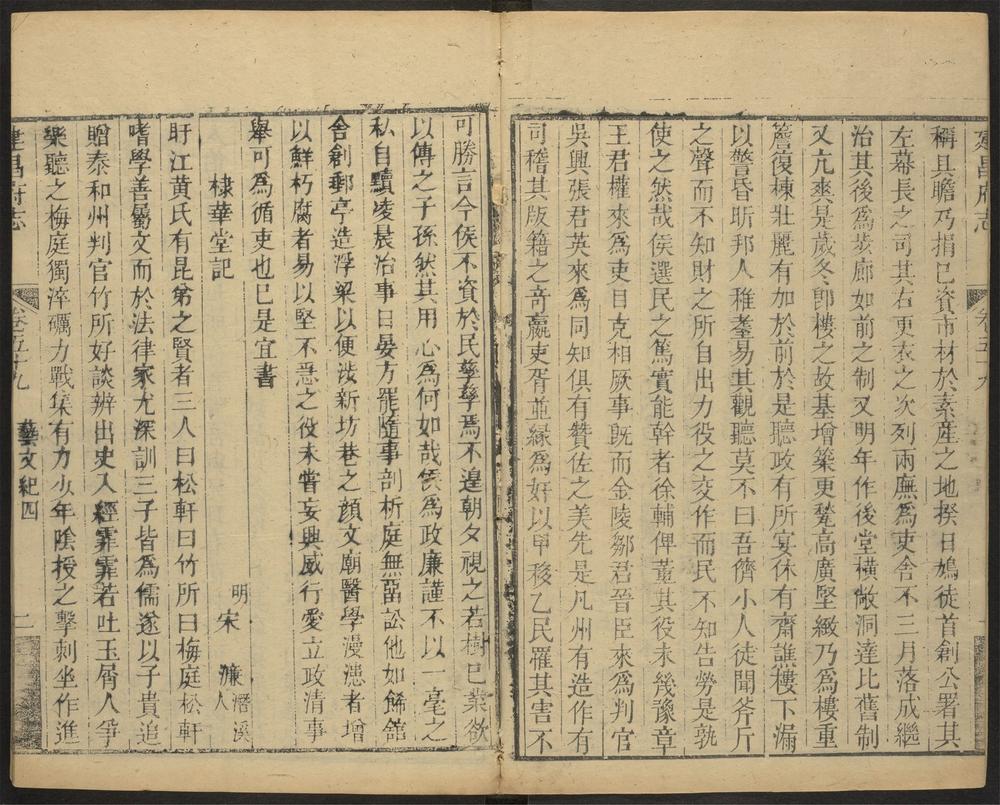 建昌府志
卷五十九
稱具瞻乃捐已資市材於素產之地揆日鳩徒首創公署其
左幕長之司其右更衣之次列兩廡為吏舍不三月落成繼
治其後為步廊如前之制又明年作後堂橫敞洞達比舊制
又亢爽是歲冬卽樓之故基增築更甃高廣堅緻乃為樓重
簷復棟壯麗有加於前於是聽政有所宴休有齋譙樓下漏
以警昏昕邦人稚耋易其觀聽莫不曰吾儕小人徒聞斧斤
之聲而不知財之所自出力役之交作而民不知告勞是孰
使之然哉侯選民之篤實能幹者徐輔俾董其役未幾豫章
王君權來為吏目克相厥事既而金陵鄒君晉臣來為判官
吳興張君英來為同知俱有贊佐之美先是凡州有造作有
司稽其版籍之竒羸吏胥並緣為奸以甲移乙民罹其害不
可勝言今侯不資於民孳孳焉不遑朝夕視之若樹已業欲
以傳之子孫然其用心為何如哉侯為政廉謹不以一毫之
私自黷凌晨治事日晏方罷隨事剖析庭無畱訟他如餙舘
舍創郵亭造浮梁以便涉新坊巷之顏文廟醫學漫漶者增
以鮮朽腐者易以堅不急之役未嘗妄興威行愛立政清事
舉可為循吏也已是宜書
棣華堂記
明宋濂潛溪人
盱江黃氏有昆弟之賢者三人曰松軒曰竹所曰梅庭松軒
嗜學善屬文而於法律家尤深訓三子皆為儒遂以子貴追
贈泰和州判官竹所好談辨出史入經霏霏若吐玉屑人爭
樂聽之梅庭獨淬礪力戰集有力少年陰授之擊刺坐作進
建昌府志
卷五十九
藝文紀四
二